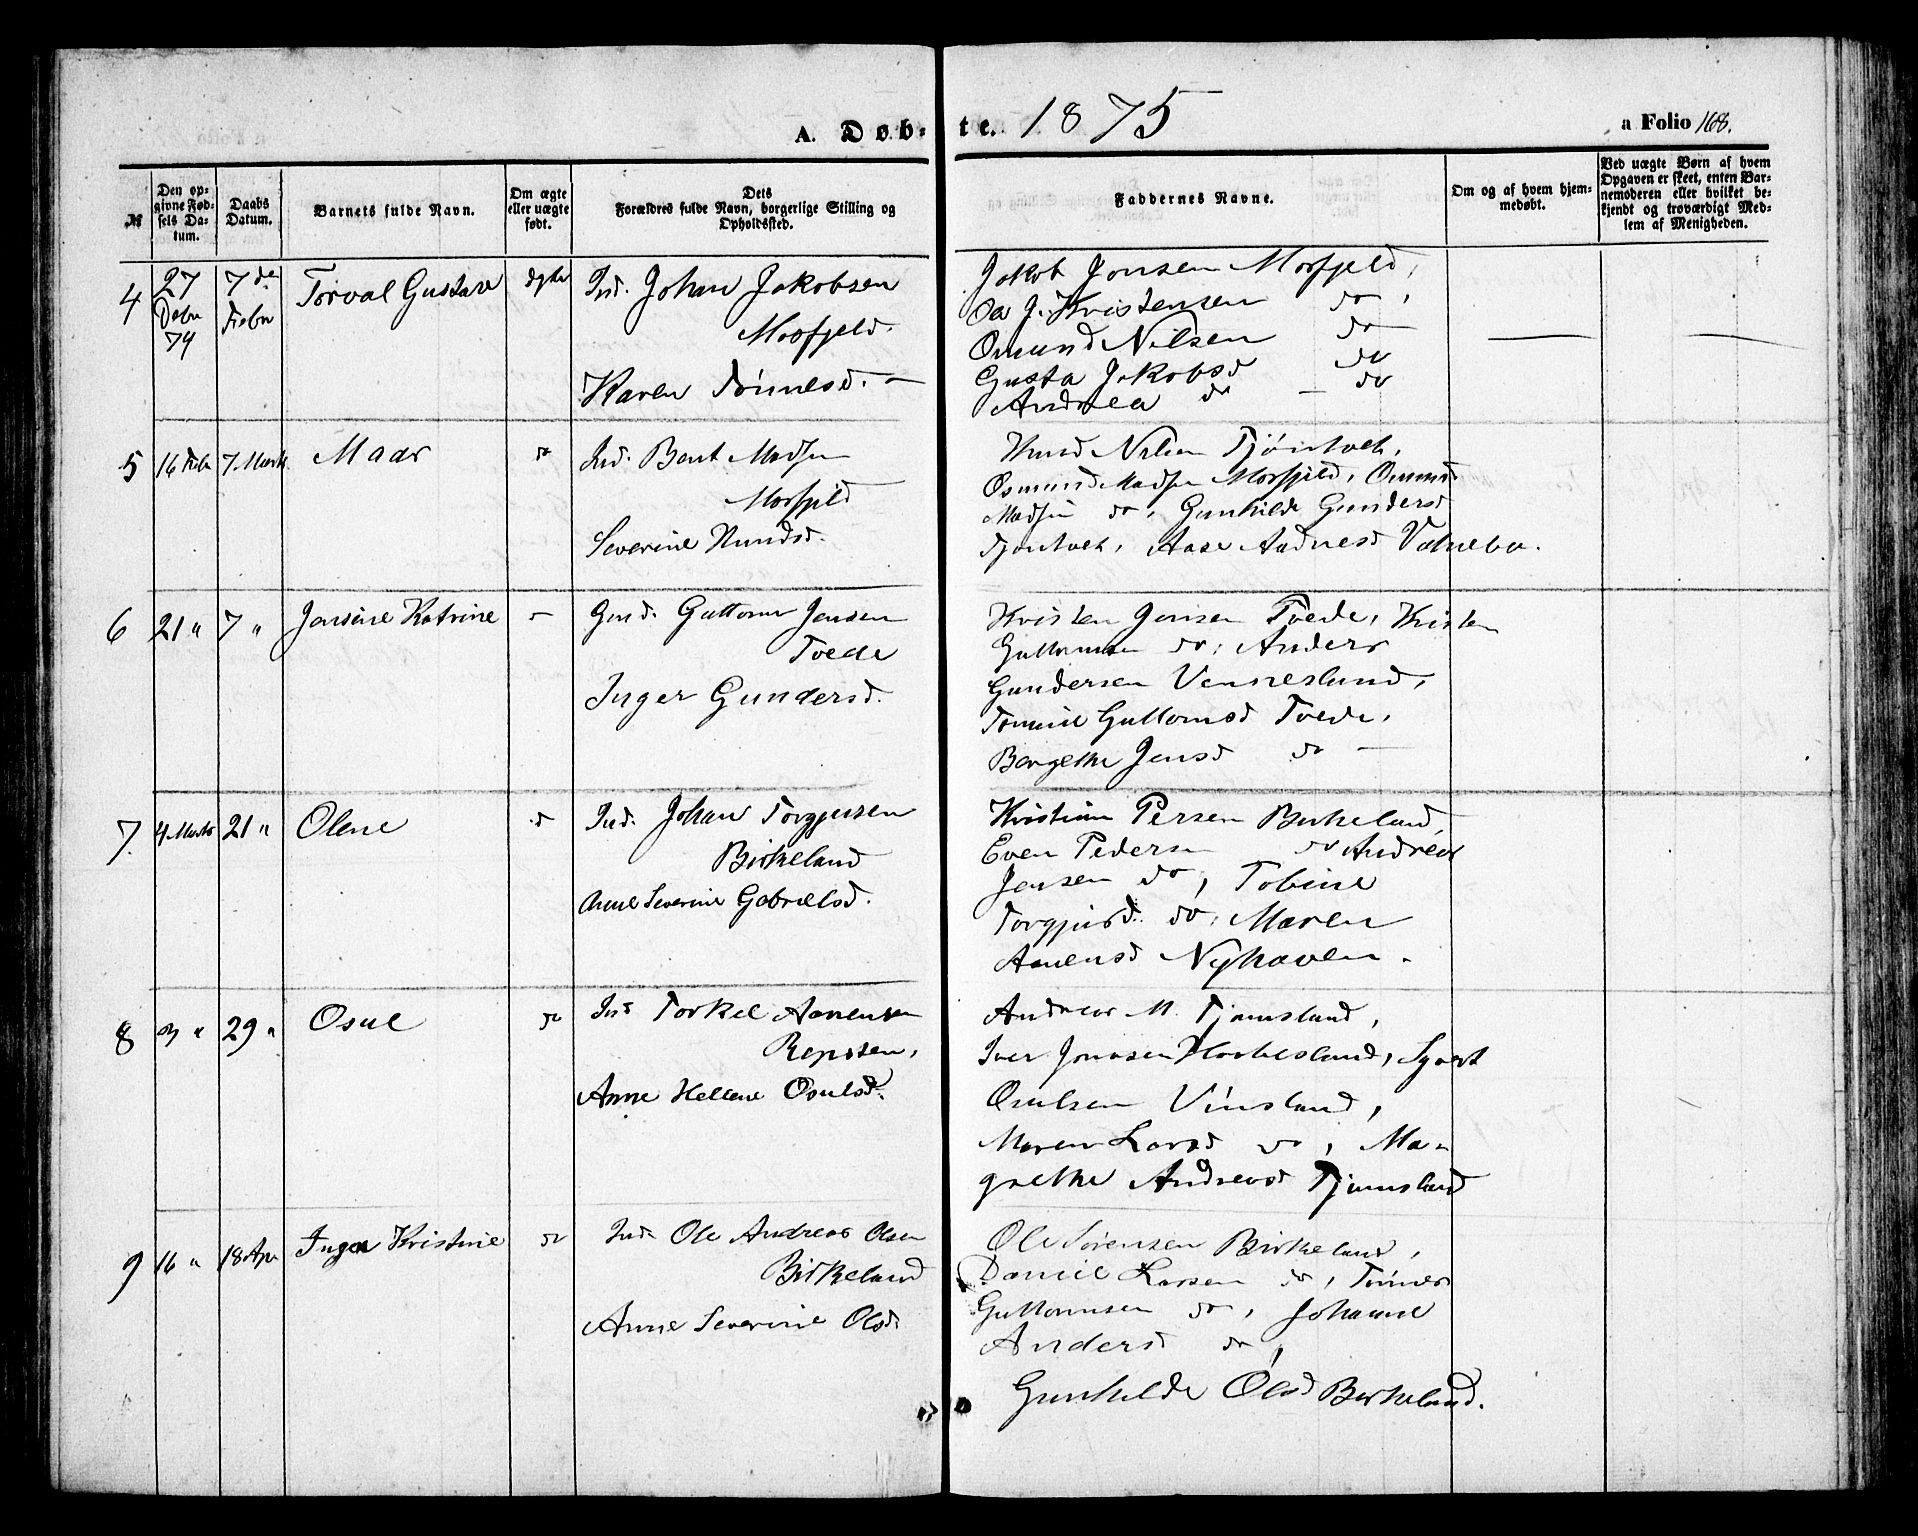 A. Døb-
te. 1875
a Folio 168.
№
Den op-
givne Fød-
sels Da-
tum.
Daabs
Datum.
Barnets fulde Navn.
Om ægte
eller uægte
født.
Dets
Forældres fulde Navn, borgerlige Stilling og
Opholdssted.
Faddernes Navne.
Om og af hvem hjem-
medøbt.
Ved uægte Børn af hvem
Opgaven er skeet, enten Bar-
nemoderen eller hvilket be-
kjendt og troværdigt Med-
lem af Menigheden.
4
27
Debr
74
7de
Febr
Torval Gustav
Ind. Johan Jakobsen
Mosfjeld.
Karen Tönnesd. —
Jakob Jonsen Mosfjeld,
Kristensen do,
Omund Nilsen do
Gusta Jakobsd do
Andrea do — do
5
16 Febr
7 Marts
Mads
do
Ind. Bent Madsen
Mosfjeld
Severine Knudsd.
Knud Nilsen Tjöntvet,
Osmund Madsen Mosfjeld, Omund
Madsen do, Gunhilde Gundersd
Tjöntvet, Aase Aadnesd
6
21 "
7 "
Jensine Katrine
Guttorm Jensen
Tvede
Inger Gundersd.
Kristen Jensen Tvede, Kristen
Guttormsen do, Anders
Gundersen Venneslund,
Tomine Guttormsd Tvede,
Bergethe Jensd do —
7.
4 Marts
21 "
Olene
do
Ind. Johan Torgjusen
Birkeland
Anne Severine Gabrielsd.
Kristian Persen Birkeland,
Even Pedersen do Andreas
Jensen do, Tobine
Torgjusd. do, Maren
Aanensd Nyhaven.
8
3 "
29 "
Osul
do
Ind Torkel Aanensen
Repsten,
Anne Hellene Osulsd.
Andreas M. Tjomsland,
Iver Jonasen Sjvert
Osulsen Vinsland,
Maren Larsd do, Ma-
grethe Andreasd Tjomsland
9
16 "
18 Apr
Inger Kristine
do
Ind. Ole Andreas Olsen
Birkeland
Anne Severine Olsd.
Ole Sörensen Birkeland,
Daniel Larsen do, Tönnes
Guttormsen do, Johanne
Andersd do,
Gunhilde Olsd Birkeland.